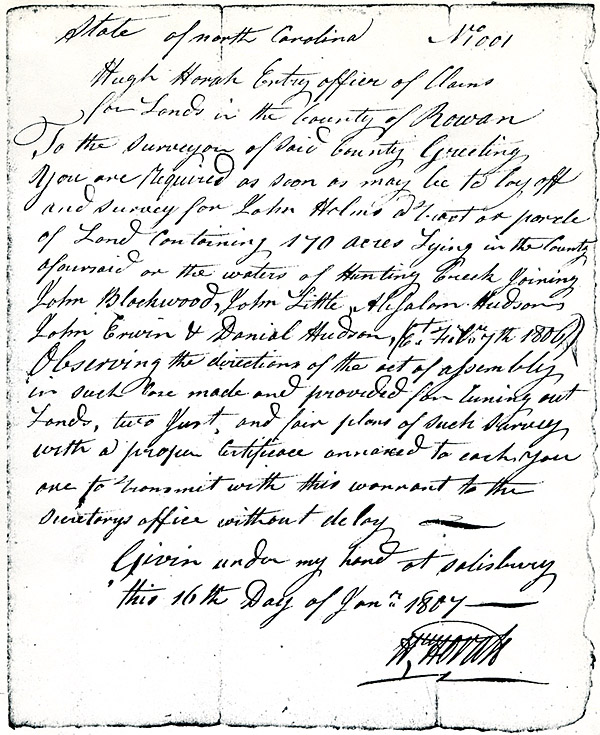 State of north Carolina Nro 1001
Hugh Horah Entry officer of Claims
for Lands in the County of Rowan
To the Surveyor of Said County Greeting
You are required as soon as may be to lay off
and survey for John Holms a tract or parcle
of Land Containing 170 acres Lying in the County
afoursaid on the waters of Hunting Creek Joining
John Blackwood, John Little, Absalom Hudson,
John Erwin & Danial Hudson, 7th 1806,
Observing the directions of the act of assembly
in such Case made and provided for runing out
Lands, two Just, and fair plans of such survey
with a proper Certificate annaxed to each, you
are to transmit with this warrant to the
Secretarys office without delay
Givin under my hand at Salisbury
this 16th Day of Janr 1807
H. Horah